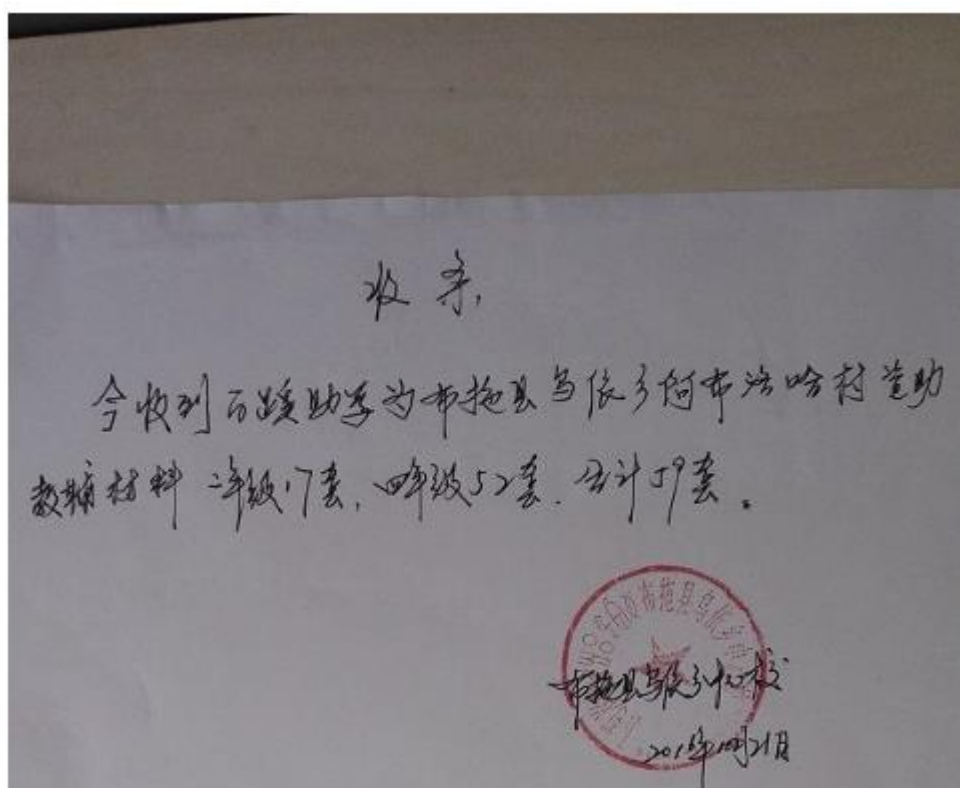 收条
今收到百蹊助学为布拖县乌依乡阿布洛哈村资助
教辅材料 二年级17套,四年级52套. 合计59套。
布拖县乌依乡中心校
布拖县乌依乡
2016年10月21日